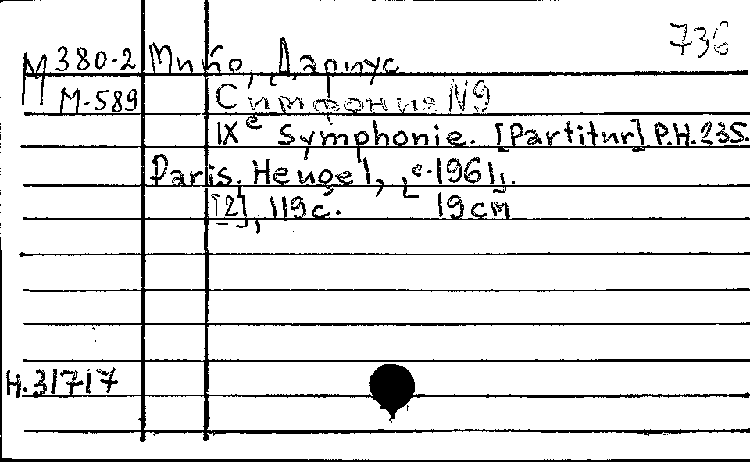 736
М 380-2 Мийо, Дариус
М-589 Симфония N9
IXe Symphonie. [Partitur] P.H. 235.
Paris, Heugel, [c. 1961].
[2], 119 с. 19 cm
Н. 31717